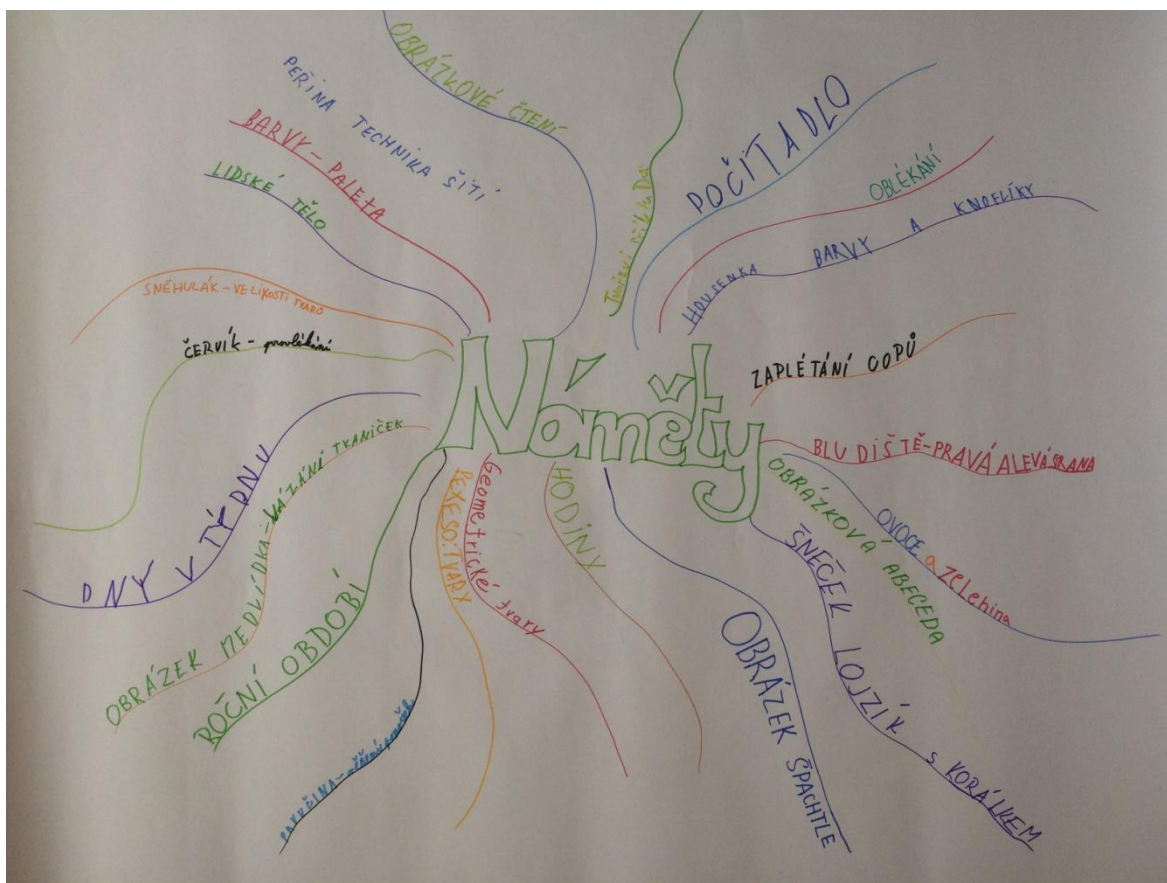 Náměty
OBRÁZKOVÉ ČTENÍ
PEŘINA TECHNIKA ŠITÍ
BARVY - PALETA
LIDSKÉ TĚLO
SNĚHULÁK - VELIKOSTI TVARŮ
ČERVÍK - provlékání
DNY V TÝDNU
OBRÁZEK MEDVÍDKA - VÁZÁNÍ TKANIČEK
ROČNÍ OBDOBÍ
PAVUČINA -
PEXESO: TVARY
Geometrické tvary
HODINY
OBRÁZEK ŠPACHTLE
ŠNEČEK LOJZÍK S KORÁLKEM
OBRÁZKOVÁ ABECEDA
OVOCE a zelenina
BLUDIŠTĚ - PRAVÁ A LEVÁ STRANA
ZAPLÉTÁNÍ COPŮ
HOUSENKA BARVY A KNOFLÍKY
OBLÉKÁNÍ
POČÍTADLO
Tvoření